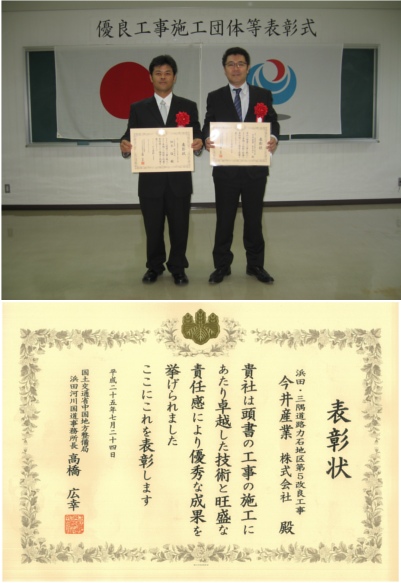 優良工事施工団体等表彰式
表彰状
浜田・三隅道路力石地区第5改良工事
今井産業 株式会社 殿
貴社は頭書の工事の施工に
あたり卓越した技術と旺盛な
責任感により優秀な成果を
挙げられました
ここにこれを表彰します
平成二十五年七月二十四日
国土交通省中国地方整備局
浜田河川国道事務所長 高橋 広幸